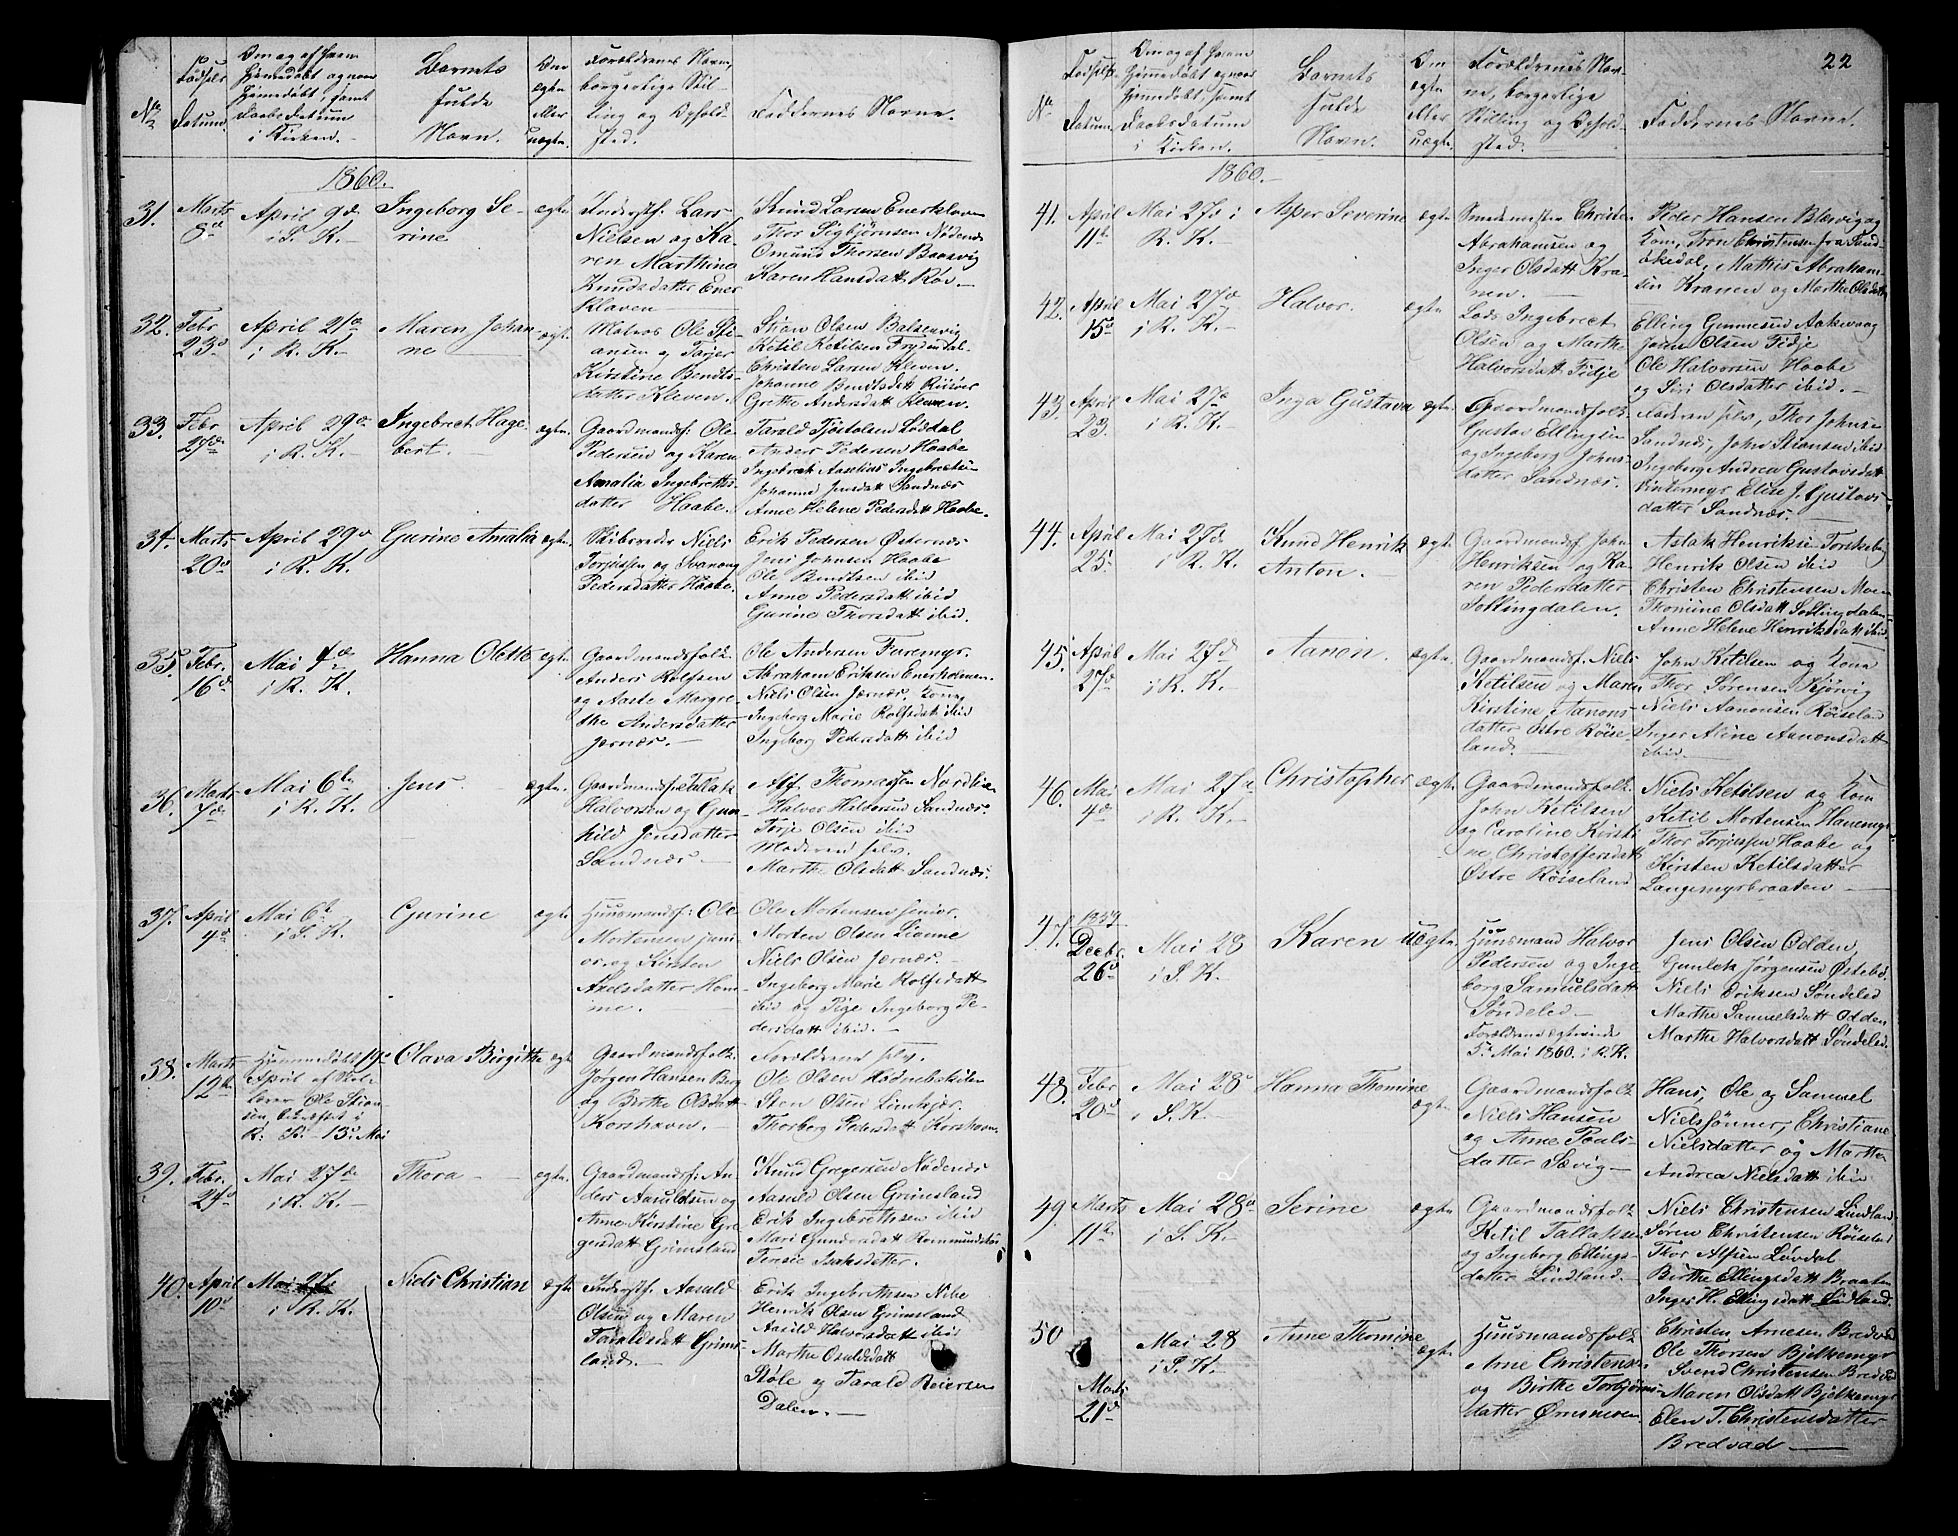 No
Fødsels
Datum
Barnets
fulde
Navn.
Faddernes Navne.
1860.
31.
Marts
8de
April 9de
i S. K.
Ingeborg Se-
rine
ægte
Lars
Nielsen og Ka-
ren Marthine
Knudsdatter Ener
Kleven
Knud Larsen Enerkleven
Thor Sigbjørnsen Nødenes
Omund Thorsen Baasvig
Karen Hansdatt Røv.
32.
Febr
23d
April 21de
i R. K.
Maren Johan-
ne
ægte
Matros Ole Sti-
ansen og Tarjer
Kirstine Bendts-
datter Kleven.
Stian Olsen
Ketil Ketilsen Frydendal
Christen Larsen Kleven.
Johanne Bendtsdatt Riisøer
Grethe Andersdatt Kleven.
33.
Febr
27de
April 29de
i R. K.
Ingebret Hage-
bert.
ægte.
Gaardmandsf: Ole
Pedersen og Karen
Amalia Ingebretts-
datter Haabe.
Tarald Tjøstolsen Lødtal
Anders Pedersen Haabe
Ingebreth Aanetius Ingebrethsen
Johanne Jensdatt Sandnæs
Anne Helene Pedersdatt Haabe.
34.
Marts
20de
April 29de
i R. K.
Gurine Amalia
ægte.
Skibsreder Niels
Torjussen og Svanaug
Pedersdatter Haabe.
Erik Pedersen Østernes
Jens Johnsen Haabe
Ole Bendtsen ibid
Anne Pedersdatt ibid
Gurine Thorsdatt ibid.
35.
Febr.
16de
Mai 4de
i R. K.
Hanna Olette
ægte.
Gaardmandsfolk
Anders Rolfsen
og Aaste Margre-
the Andersdatter
Jernæs.
Ole Andersen Furemyr.
Abraham Eriksen Enerholmen.
Niels Olsen Jernæs, Kone
Ingeborg Marie Rolfsdatt ibid
Ingeborg Pedersdatt ibid
36.
Marts
7de
Mai 6te
i R. K.
Jens
ægte.
Gaardmandsf: Tallak
Halvorsen og Gun-
hild Jensdatter
Sandnæs.
Alf Thomassen
Halvor Halvorsen Sandnæs.
Torje Olsen ibid
Moderen selv.
Marthe Olsdatt Sandnæs.
37.
April
4de
Mai 6te
i S. K.
Gurine
ægte.
Huusmandsf: Ole
Mortensen juni-
or. og Kirsten
Axelsdatter Hom-
me.
Ole Mortensen senior.
Morten Olsen Lianne
Niels Olsen Jernæs.
Ingeborg Marie Rolfsdatt
ibid og Pige Ingeborg Pe-
dersdatt ibid.
38.
Marts
12te
Hjemmedøbt 19de
April af Skole-
lærer Ole Stian-
sen, bekræftet i
R. K. 13de Mai
Olava Birgitte
ægte
Gaardmandsfolk
Jørgen Hansen Berg
og Birthe Olsdatt
Korshavn.
Forældrene selv.
Ole Olsen Hødnebskilen
Sten Olsen Linkjer.
Thorberg Pedersdatt Korshavn
39.
Febr.
24de
Mai 27de
i R. K.
Thora
ægte.
Gaardmandsf: An-
ders Aasuldsen og
Anne Kirstine Gre-
gersdatt Grimsland
Knud Gregersen Nødenes
Aasuld Olsen Grimsland
Erik Ingebrethsen ibid
Mari Gundersdatt
Tensie Isaksdatter.
40.
April
10de
Mai 27
i R. K.
Niels Christian
ægte
Inderstf. Aasuld
Olsen og Maren
Taraldsdatt Grims-
land.
Erik Ingebrethsen Nibe
Henrik Olsen Grimsland
Aasuld Halvorsdatt ibid
Marthe Osuldsdatt
Støle og Tarald Reiersen
Dalen.
22
No
Fødsels
Datum
Barnets
fulde
Navn.
Faddernes Navne.
1860.
41.
April
11te
Mai 27d i
R. K.
Asper Severine
ægte.
Smedemester Christen
Abrahamsen og
Inger Olsdatt Kra-
nen.
Peder Hansen Blervig og
Kone, Tron Christensen fra Sand-
økedal, Mathis Abraham-
sen Kranen og Marthe Olsdatt
42.
April
15de
Mai 27de
i R. K.
Halvor.
ægte.
Lods Ingebret
Olsen og Marthe
Halvorsdatt Fidje
Elling Gunnesen Aakvaag
Jøren Olsen Fidje
Ole Halvorsen Haabe
og Siri Olsdatter ibid.
43.
April
23.
Mai 27de
i R. K.
Inga Gustava
ægte.
Gaardmandsfolk
Gustav Ellingsen
og Ingeborg Johns-
datter Sandnæs.
Faderen selv, Thor Johnsen
Sandnæs, John Stiansen ibid
Ingeborg Andrea Gustavsdatt
Vintermyr Elise J. Gustavs-
datter Sandnæs.
44.
April
25.
Mai 27de
i R. K.
Knud Henrik
Anton.
ægte.
Gaardmandsf. John
Henriksen og Ka-
ren Pedersdatter
Sollingdalen.
Aslak Henriksen Torskeberg
Henrik Olsen ibid
Christen Christensen Moen
Thomine Olsdatt Sollingdalen
Anne Helene Henriksdatt ibid.
45.
April
27de
Mai 27de
i R. K.
Aanon.
ægte.
Gaardmandsf. Niels
Ketilsen og Maren
Kirstine Aanons-
datter Østre Røise-
land.
John Ketilsen og Kone
Thor Sørensen Kjørvig
Niels Aanonsen Røiseland
Inger Aline Aanonsdatt
ibid.
46.
Mai
4de
Mai 27de
i R. K.
Christopher
ægte.
Gaardmandsfolk
John Ketilsen
og Caroline Kirsti-
ne Christoffersdatt
Østre Røiseland
Niels Ketilsen og Kone
Ketil Mortensen Hanemyr
Thor Torjussen Haabe og
Kirsten Ketilsdatter
Langemyrbraaten
47.
1859
Decbr.
26de
Mai 28
i S. K.
Karen
uægte.
Huusmand Halvor
Pedersen og Inge-
borg Samuelsdatt
Søndeled.
Forældrene ægteviede
5te Mai 1860. i R. K.
Jens Olsen Odden,
Gunlek Jørgensen Østebø
Niels Eriksen Søndeled
Marthe Samuelsdatt Odden
Marthe Halvorsdatt Søndeled.
48.
Febr
20de
Mai 28de
i S. K.
Hanna Thomine
ægte.
Gaardmandsfolk
Niels Hansen
og Anne Pouls-
datter Sævig
Hans, Ole og Samuel
Nielssønner, Christiane
Nielsdatter og Marthe
Andrea Nielsdatt ibid
49.
Marts
11te
Mai 28de
i S. K.
Serine
ægte
Gaardmandsfolk
Ketil Tallaksen
og Ingeborg Ellings-
datter Lindland.
Niels Christensen Lindland
Søren Christensen Røiseland
Thor Alfsen Løvdal
Birthe Ellingsdatt Braaten
Inger H. Ellingsdatt Lindland.
50
Marts
21de
Mai 28
i S. K.
Anne Thomine
ægte.
Huusmandsfolk
Arne Christensen
og Birthe Torbjørns-
datter Ørnsneven
Christen Arnesen Bredvad
Ole Thorsen Bjelkemyr
Svend Christensen Bredvad
Maren Olsdatt Bjelkemyr
Elen T. Christensdatter
Bredvad